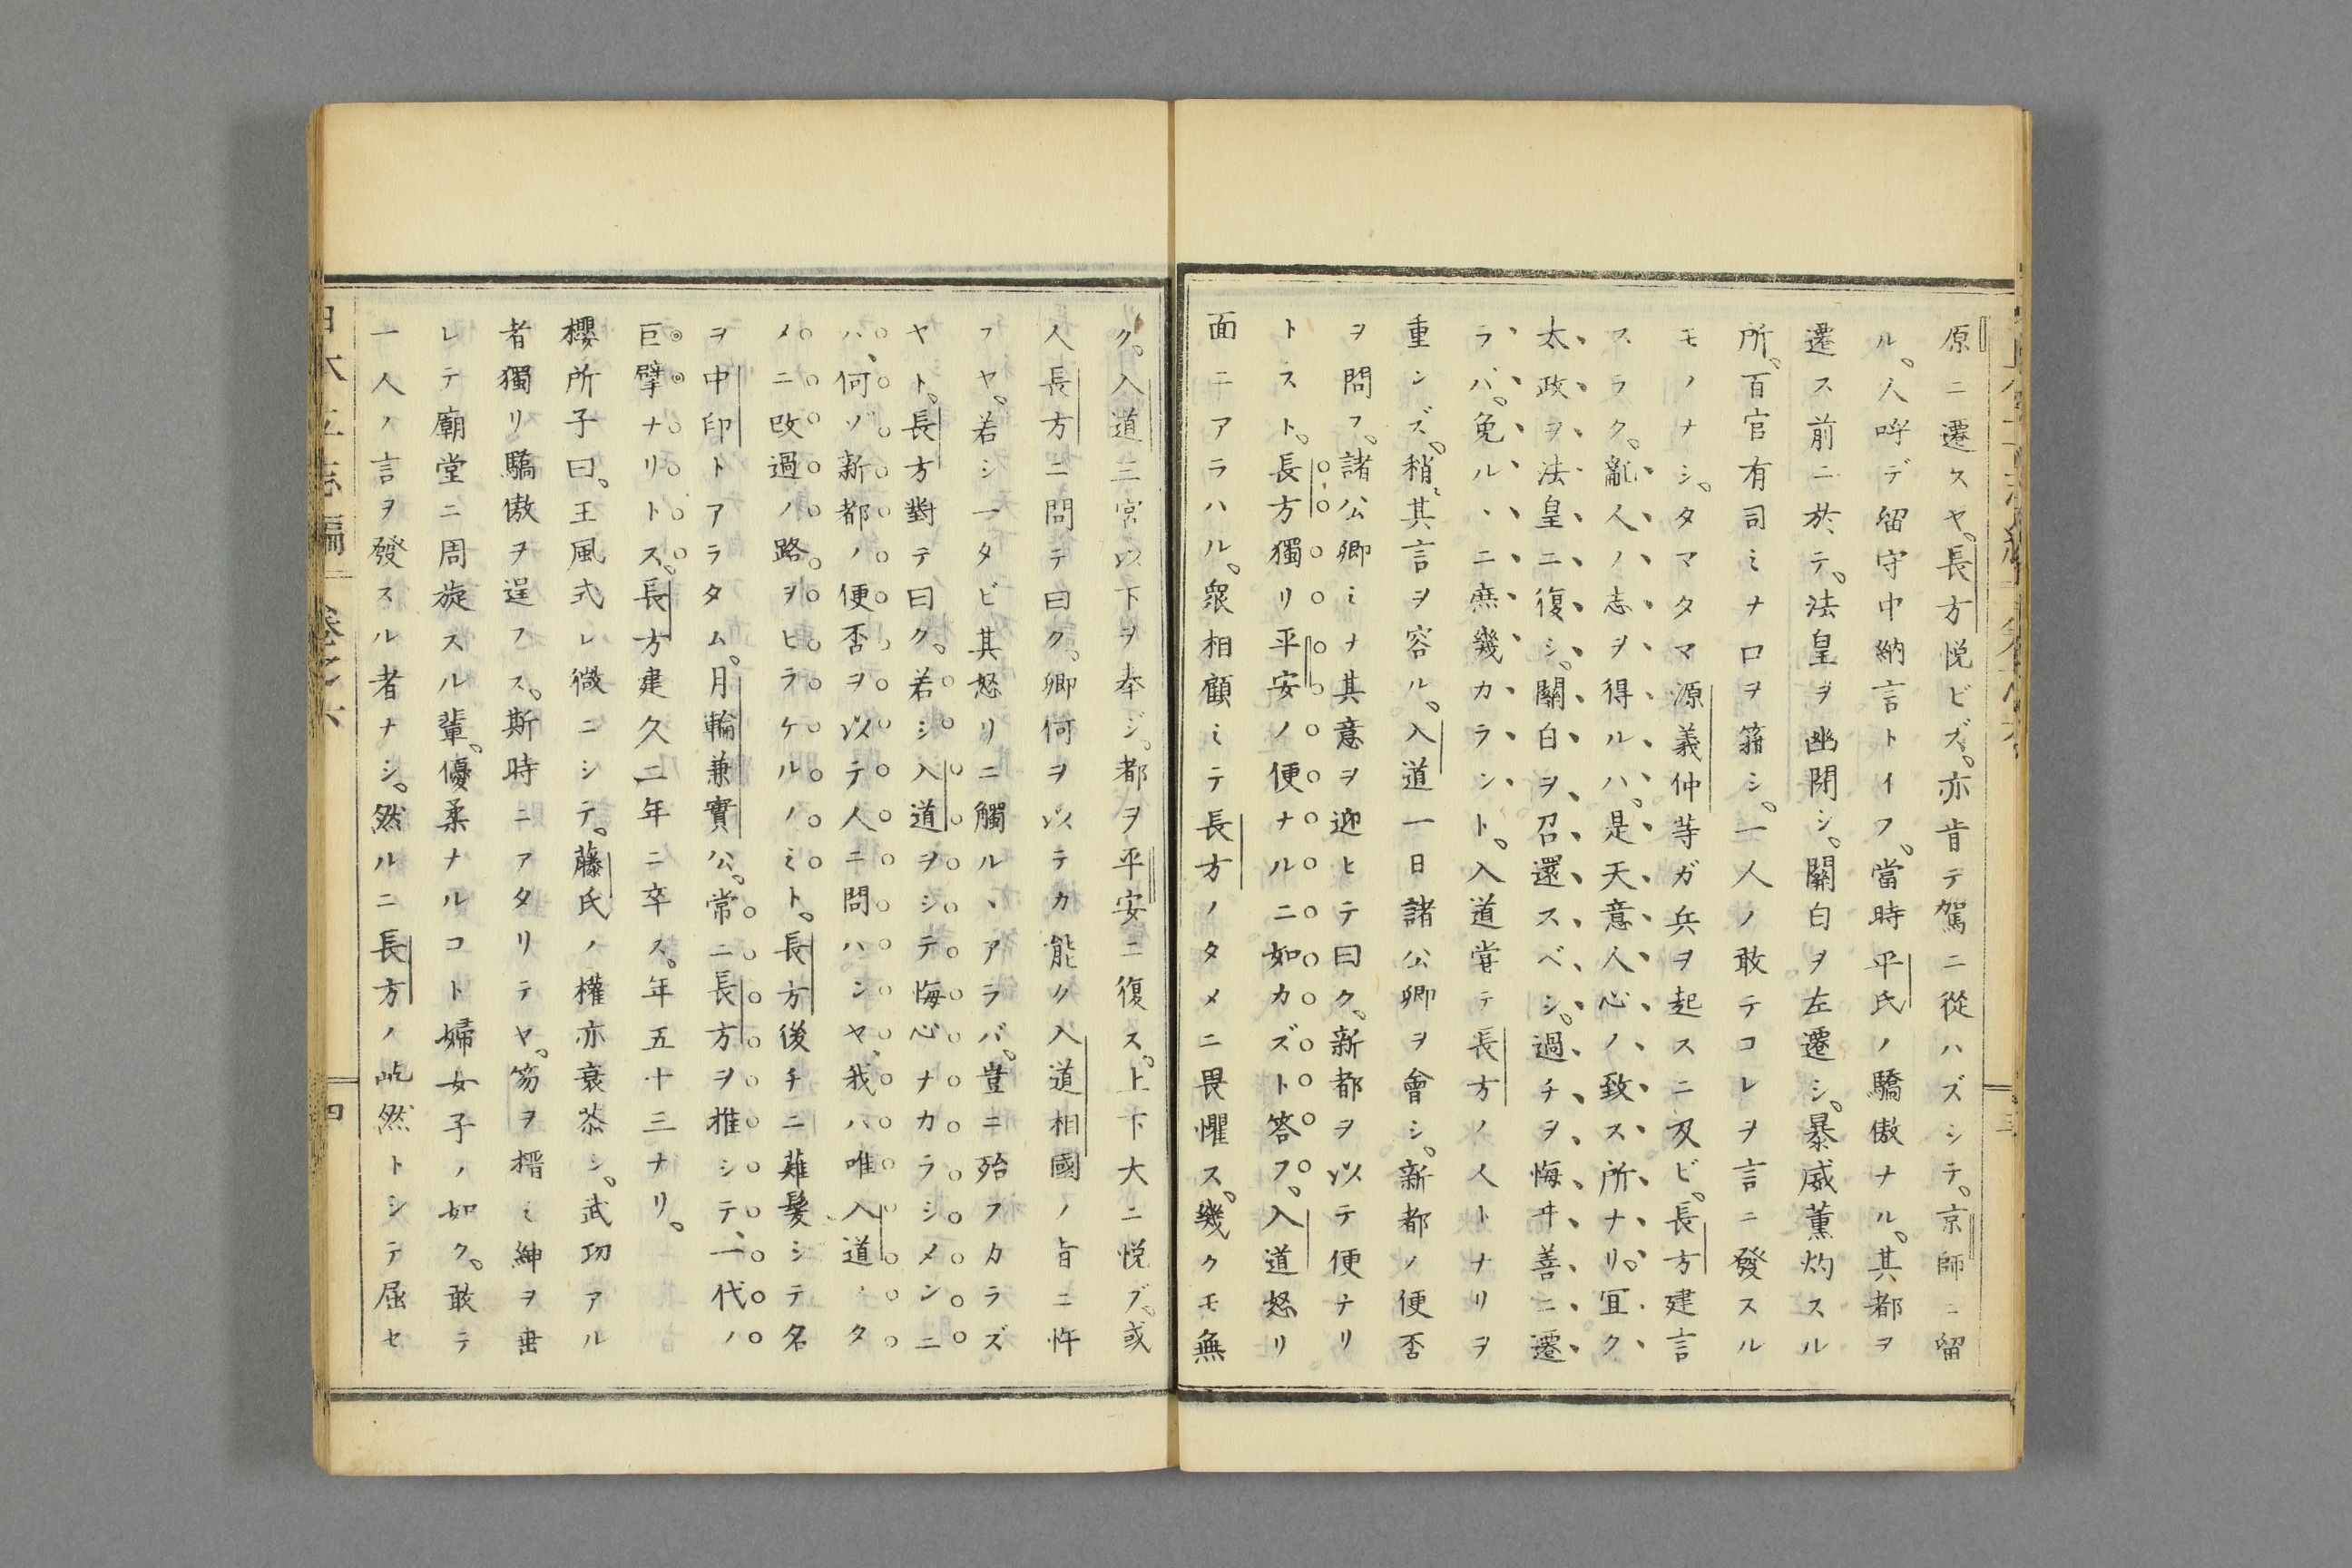 原ニ遷スヤ。長方悦ビズ。亦肯テ駕ニ從ハズシテ。京師ニ留
ル。人呼デ留守中納言トイフ。當時平氏ノ驕傲ナル。其都ヲ
遷ス前ニ於テ。法皇ヲ幽閉シ。關白ヲ左遷シ。暴威薫灼スル
所。百官有司ミナ口ヲ箝シ。一人ノ敢テコレヲ言ニ發スル
モノナシ。タマタマ源義仲等ガ兵ヲ起スニ及ビ。長方建言
スラク。亂人ノ志ヲ得ルハ。是天意人心ノ致ス所ナリ。冝ク
太政ヲ法皇ニ復シ。關白ヲ召還スベシ。過チヲ悔ヰ善ニ遷
ラバ。免ルヽニ庶幾カラント。入道甞テ長方ノ人トナリヲ
重ンズ。稍〻其言ヲ容ル。入道一日諸公卿ヲ會シ。新都ノ便否
ヲ問フ。諸公卿ミナ其意ヲ迎ヒテ曰ク。新都ヲ以テ便ナリ
トスト。長方獨リ平安ノ便ナルニ如カズト答フ。入道怒リ
面ニアラハル。衆相顧ミテ長方ノタメニ畏懼ス。幾クモ無
ク。入道三宮以下ヲ奉ジ。都ヲ平安ニ復ス。上下大ニ悦ブ。或
人長方ニ問テ曰ク。卿何ヲ以テカ能ク入道相國ノ旨ニ忤
フヤ。若シ一タビ其怒リニ觸ルヽアラバ。豈ニ殆フカラズ
ヤト。長方對テ曰ク。若シ入道ヲシテ悔心ナカラシメンニ
ハ、何ゾ新都ノ便否ヲ以テ人ニ問ハンヤ、我ハ唯入道ノタ
メニ改過ノ路ヲヒラケルノミト。長方後チニ薙髮シテ名
ヲ中印トアラタム。月輪兼實公。常ニ長方ヲ推シテ、一代ノ
巨擘ナリトス。長方建久二年ニ卒ス。年五十三ナリ。
櫻所子曰。王風式レ微ニシテ。藤氏ノ權亦衰苶シ。武功アル
者獨リ驕傲ヲ逞フス。斯時ニアタリテヤ。笏ヲ搢ミ紳ヲ垂
レテ廟堂ニ周旋スル輩。優柔ナルコト婦女子ノ如ク。敢テ
一人ノ言ヲ發スル者ナシ。然ルニ長方ノ屹然トシテ屈セ
日本立志編 卷之六 四